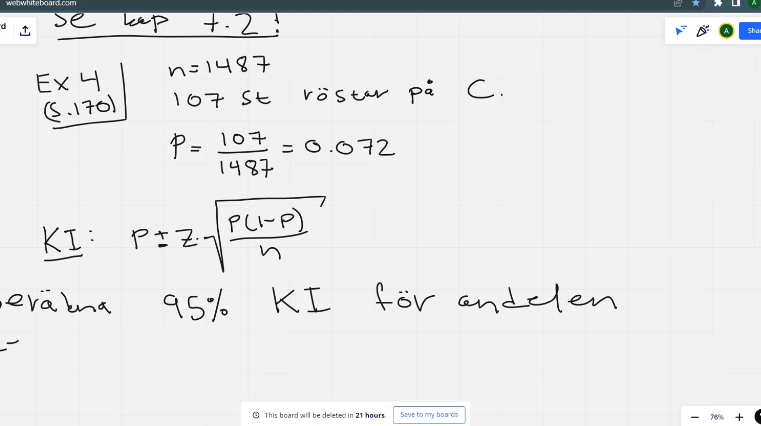 webwhiteboard.com
rd
A
Shar
Se kap 7.2!
Ex 4
(s.170)
n=1487
107 st röstar på C.
P = 107/1487 = 0.072
KI: P ± Z · √(P(1-P)/n)
beräkna 95% KI för andelen
This board will be deleted in 21 hours.
Save to my boards
76%